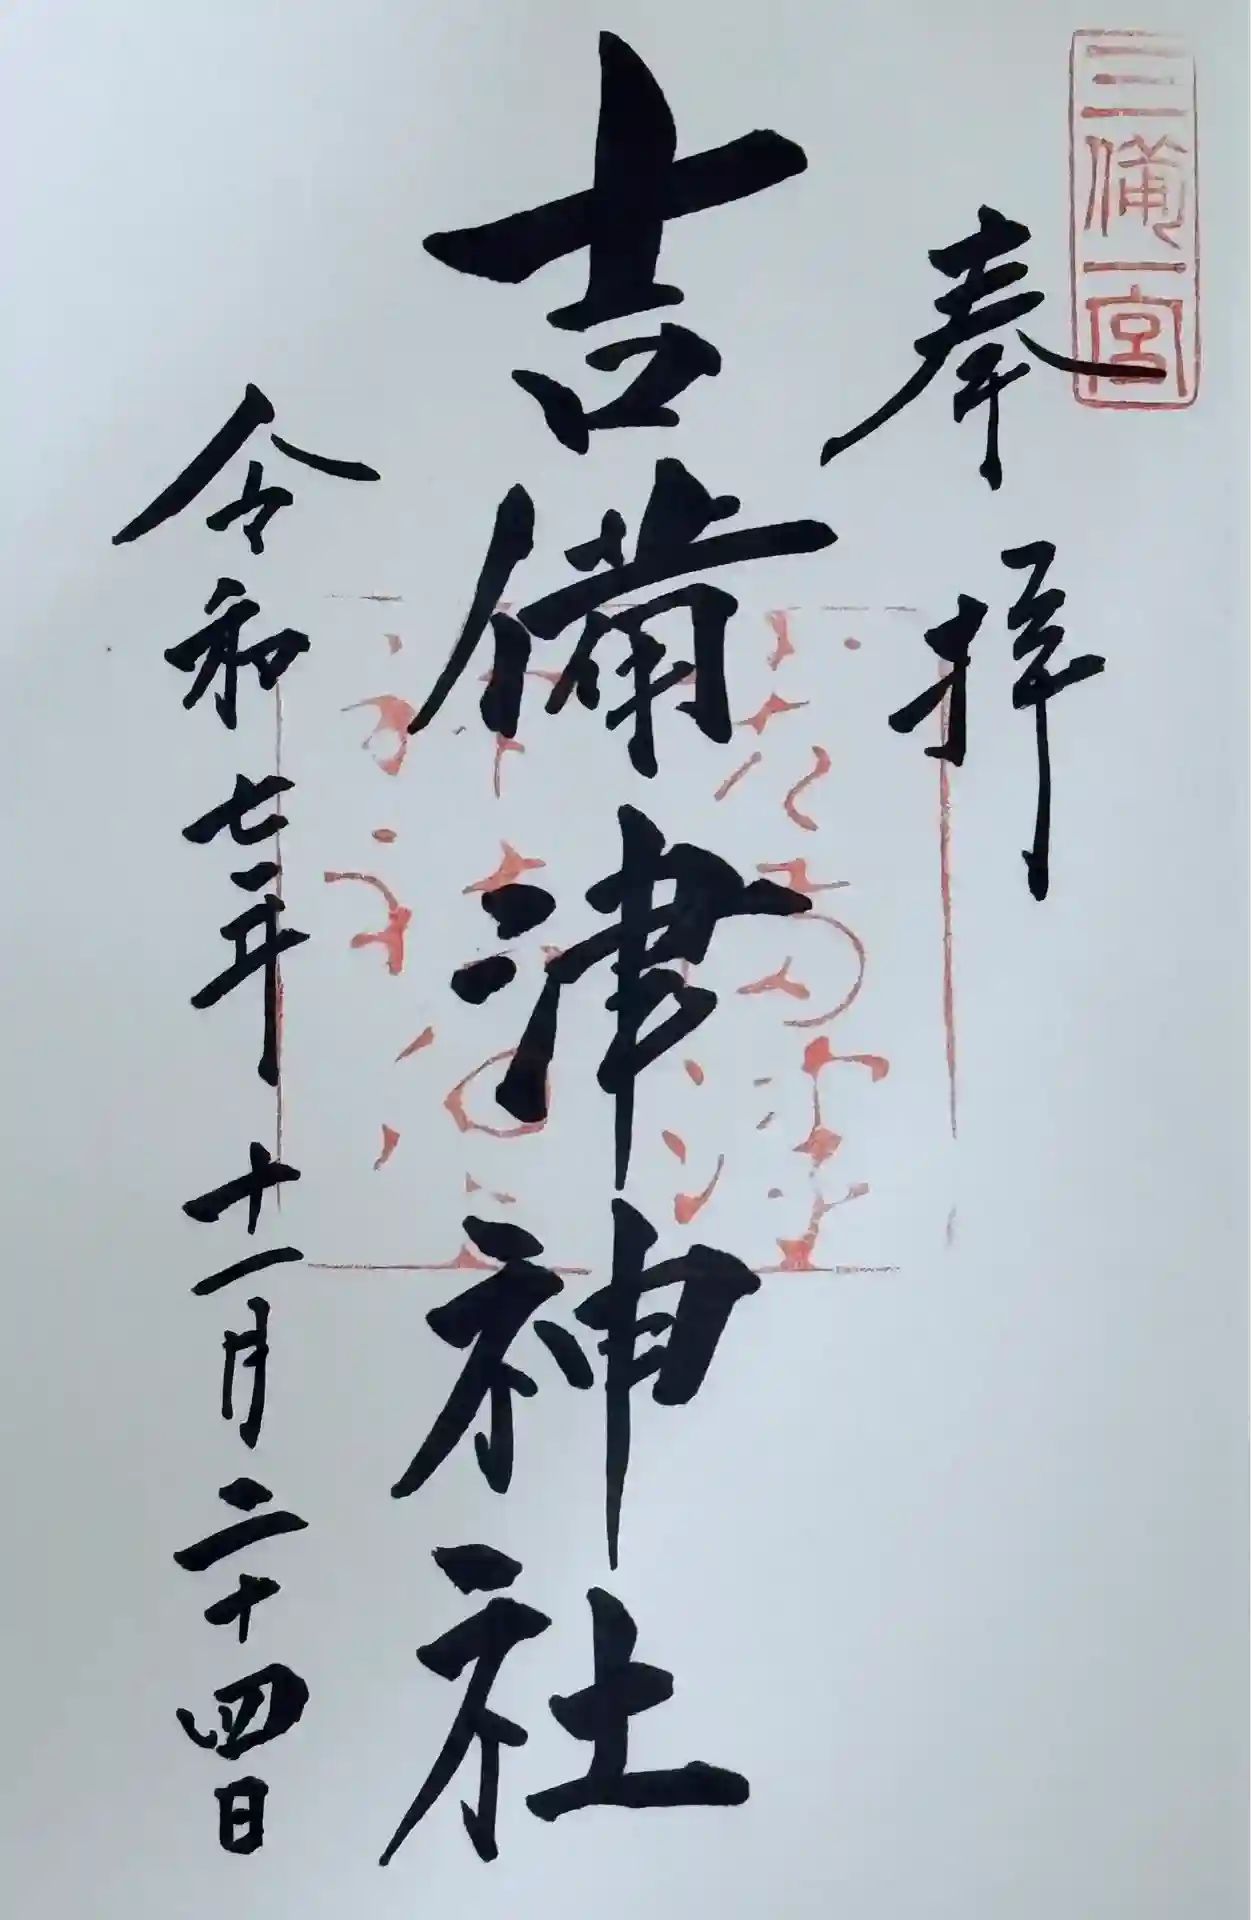 三備一宮
奉拝
吉備津神社
令和七年十一月二十四日